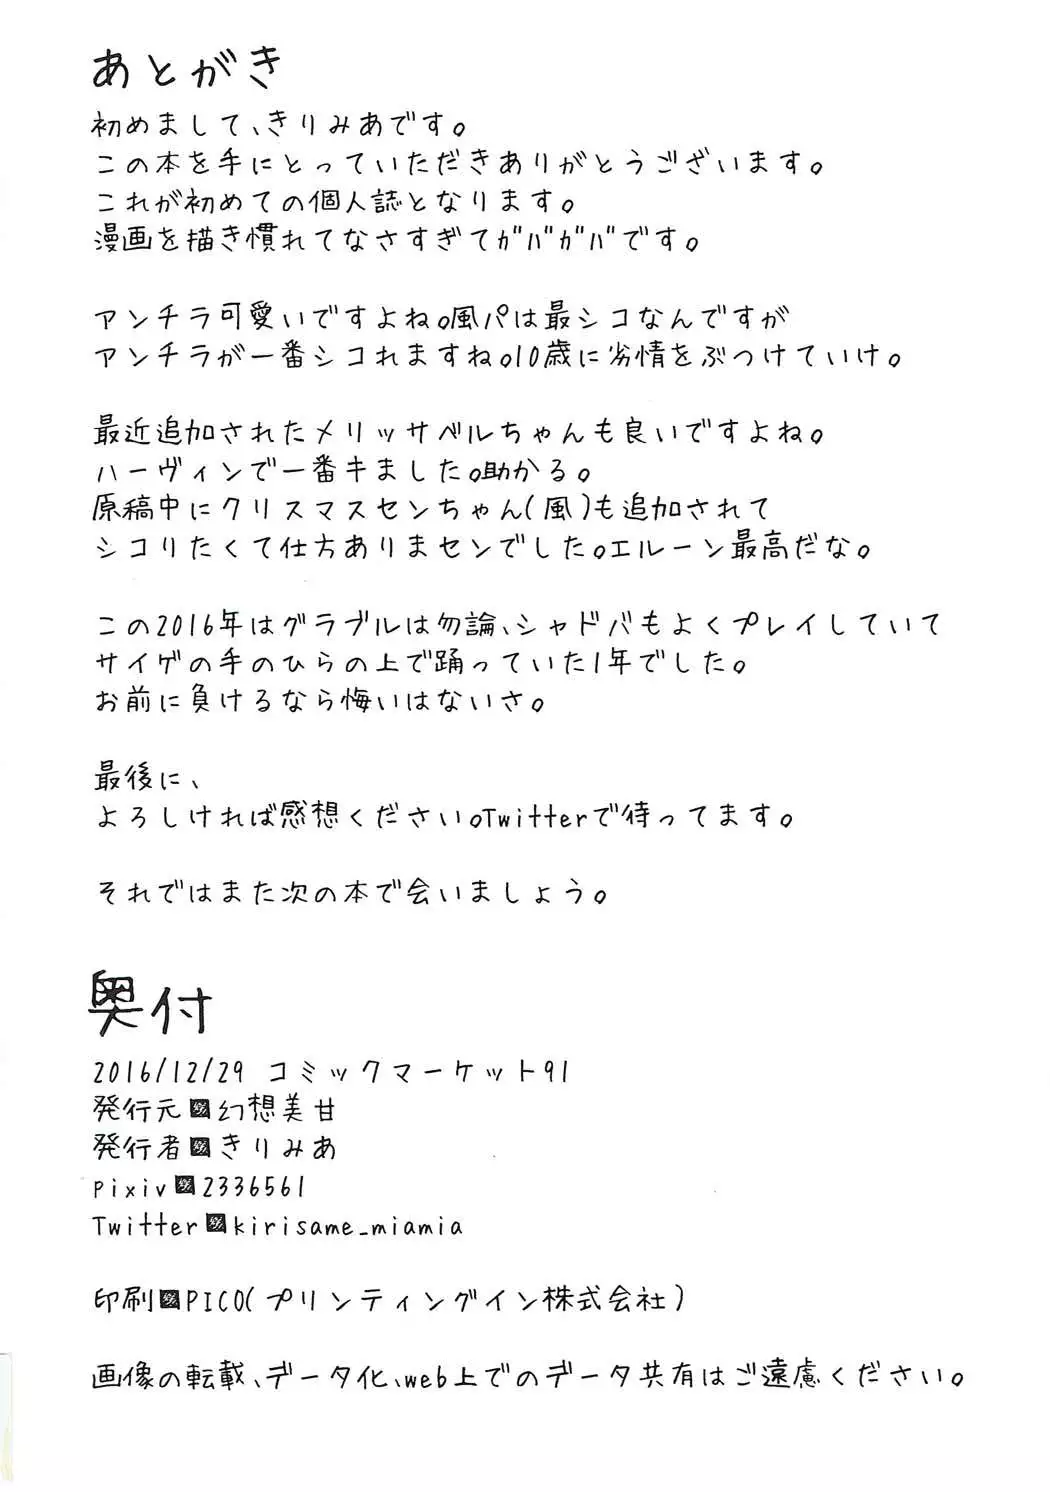 あとがき
初めまして、きりみあです。
この本を手にとっていただきありがとうございます。
これが初めての個人誌となります。
漫画を描き慣れてなさすぎてｶﾞﾊﾞｶﾞﾊﾞです。
最近追加されたメリッサベルちゃんも良いですよね。
ハーヴィンで一番キました。助かる。
原稿中にクリスマスセンちゃん(風)も追加されて
シコりたくて仕方ありまセンでした。エルーン最高だな。
この2016年はグラブルは勿論、シャドバもよくプレイしていて
サイゲの手のひらの上で踊っていた1年でした。
お前に負けるなら悔いはないさ。
最後に、
よろしければ感想ください。Twitterで待ってます。
それではまた次の本で会いましょう。
奥付
2016/12/29 コミックマーケット91
発行元 幻想美甘
発行者 きりみあ
Pixiv 2336561
Twitter kirisame_miamia
印刷 PICO(プリンティングイン株式会社)
画像の転載、データ化、web上でのデータ共有はご遠慮ください。